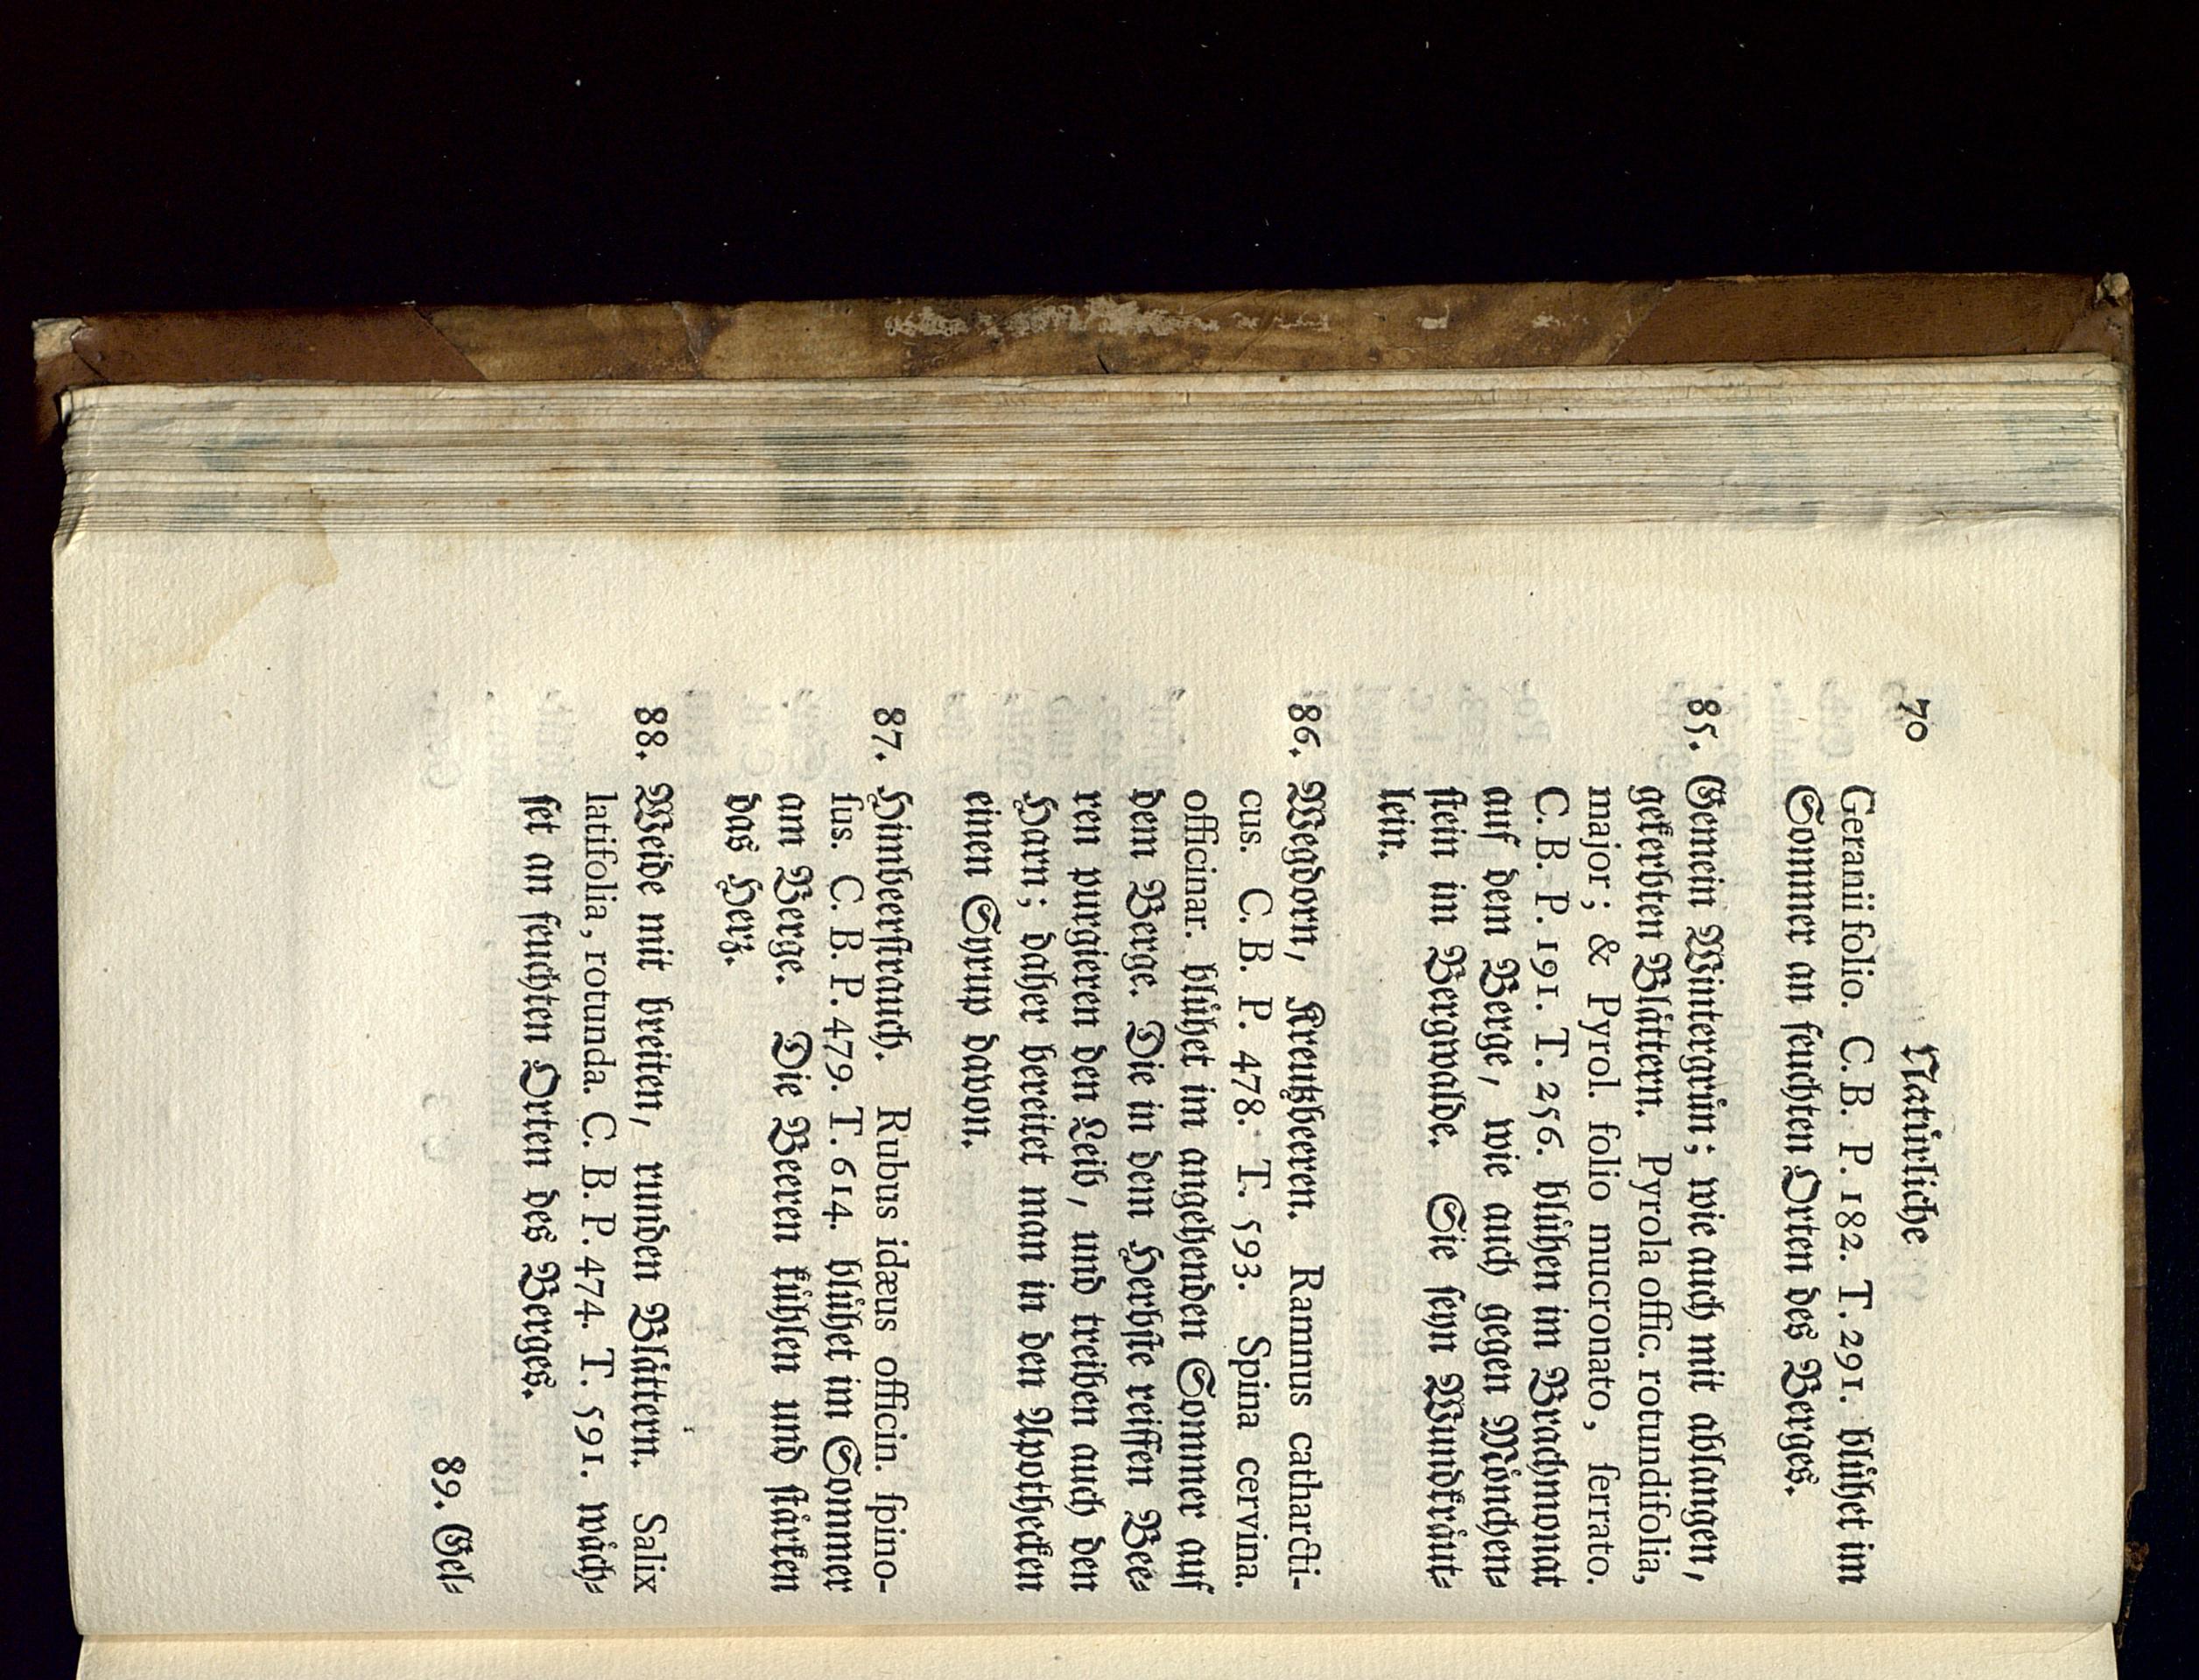 70 Natürliche
Geranii folio. C. B. P. 182. T. 291. blühet im
Sommer an feuchten Orten des Berges.
85. Gemein Wintergrün; wie auch mit ablangen,
gekerbten Blättern. Pyrola offic. rotundifolia,
major; & Pyrol. folio mucronato, ſerrato.
C. B. P. 191. T. 256. blühen im Brachmonat
auf dem Berge, wie auch gegen Mönchen⸗
ſtein im Bergwalde. Sie ſeyn Wundkräut⸗
lein.
86. Wegdorn, Kreutzbeeren. Ramnus catharcti-
cus. C. B. P. 478. T. 593. Spina cervina.
officinar. blühet im angehenden Sommer auf
dem Berge. Die in dem Herbſte reiffen Bee⸗
ren purgieren den Leib, und treiben auch den
Harn; daher bereitet man in den Apothecken
einen Syrup davon.
87. Himbeerſtrauch. Rubus idæus officin. ſpino-
ſus. C. B. P. 479. T. 614. blühet im Sommer
am Berge. Die Beeren kühlen und ſtärken
das Herz.
88. Weide mit breiten, runden Blättern. Salix
latifolia, rotunda. C. B. P. 474. T. 591. wäch⸗
ſet an feuchten Orten des Berges.
89. Gel⸗